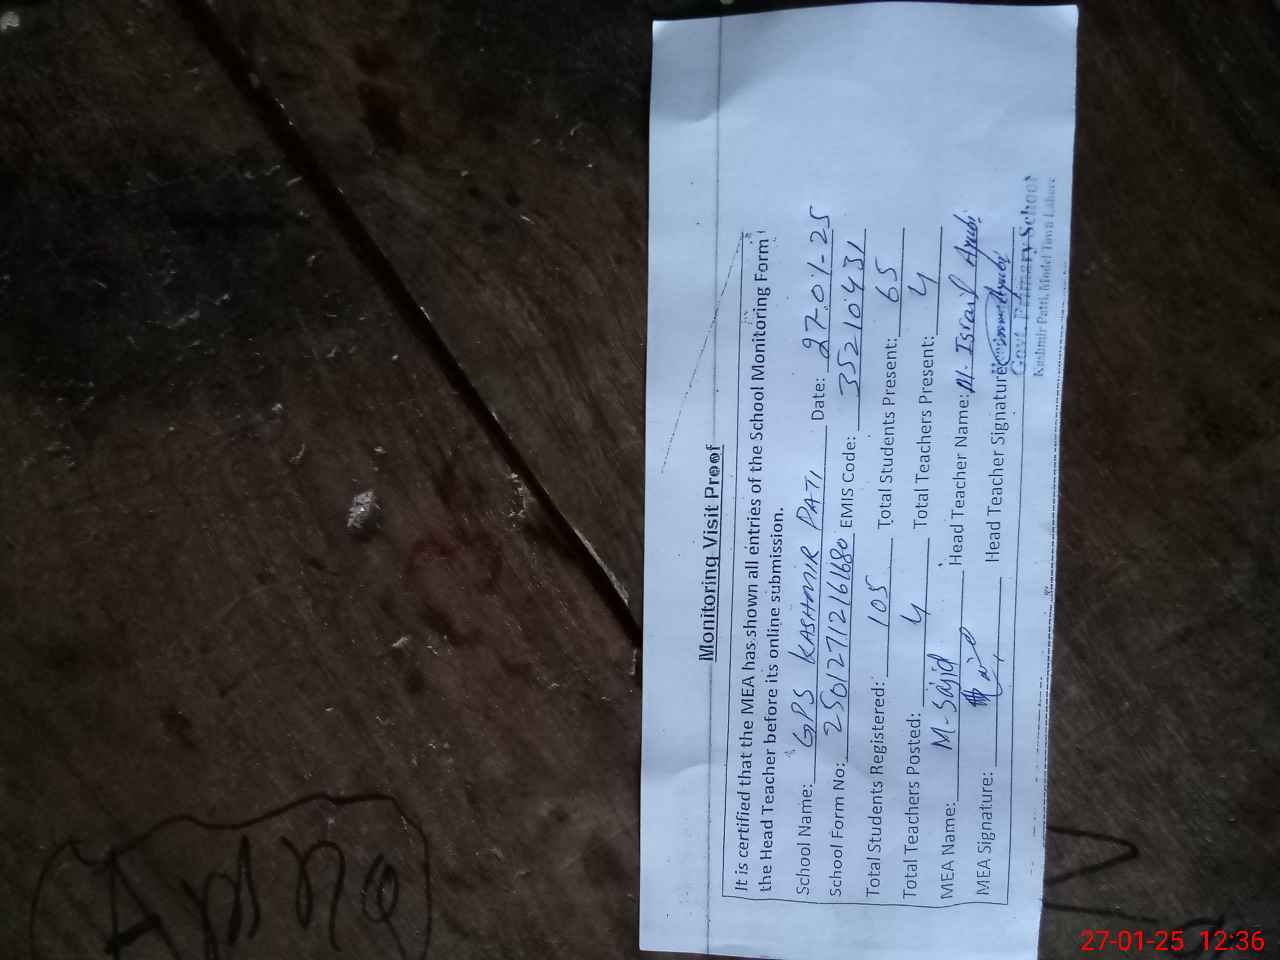 Monitoring Visit Proof
It is certified that the MEA has shown all entries of the School Monitoring Form
the Head Teacher before its online submission.
School Name: GPS KASHMIR PATI Date: 27-01-25
School Form No: 25012712161680 EMIS Code: 35210431
Total Students Registered: 105 Total Students Present: 65
Total Teachers Posted: 4 Total Teachers Present: 4
MEA Name: M-Sajid Head Teacher Name: M. Israil Ayubi
MEA Signature: Head Teacher Signature:
Govt. Primary School
Kashmir Patti, Model Town Lahore
27-01-25 12:36